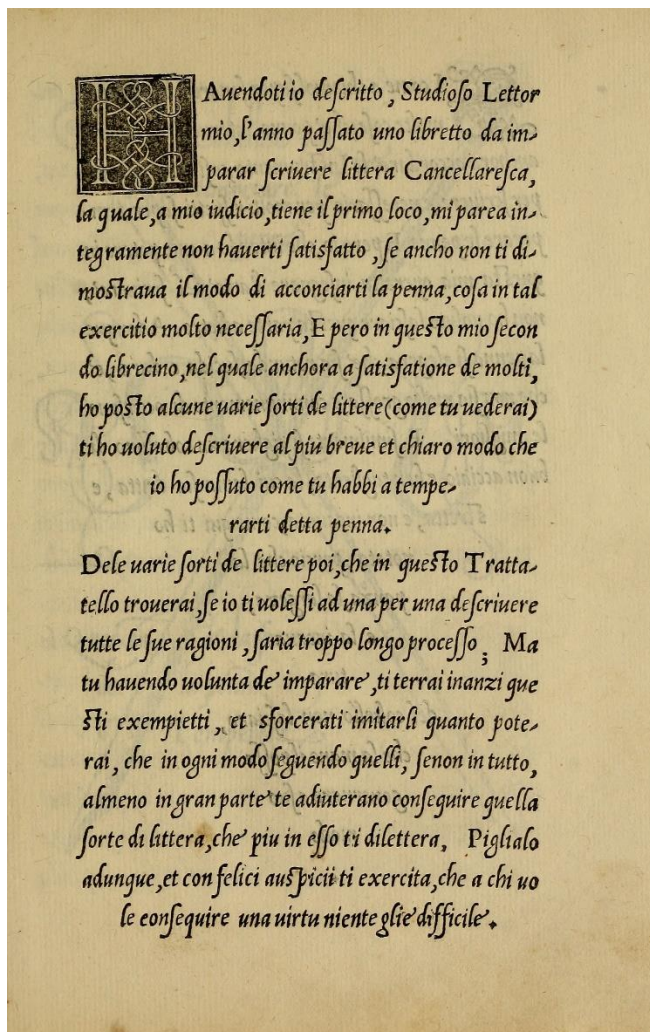 HAuendoti io deſcritto, Studioſo Lettor
mio, l'anno paſſato uno libretto da im-
parar ſcriuere littera Cancellareſca,
la quale, a mio iudicio, tiene il primo loco, mi parea in-
tegramente non hauerti ſatisfatto, ſe ancho non ti di-
moſtraua il modo di acconciarti la penna, coſa in tal
exercitio molto neceſſaria, E pero in queſto mio ſecon
do librecino, nel quale anchora a ſatisfatione de molti,
ho poſto alcune uarie ſorti de littere (come tu uederai)
ti ho uoluto deſcriuere al piu breue et chiaro modo che
io ho poſſuto come tu habbi a tempe-
rarti detta penna.
Dele uarie ſorti de littere poi, che in queſto Tratta-
tello trouerai, ſe io ti uoleſſi ad una per una deſcriuere
tutte le ſue ragioni, ſaria troppo longo proceſſo; Ma
tu hauendo uolunta de imparare, ti terrai inanzi que
ſti exempietti, et sforcerati imitarli quanto pote-
rai, che in ogni modo ſeguendo quelli, ſenon in tutto,
almeno in gran parte te adiuterano conſequire quella
ſorte di littera, che piu in eſſo ti dilettera, Piglialo
adunque, et con felici auſpicii ti exercita, che a chi uo
le conſequire una uirtu niente glie difficile.